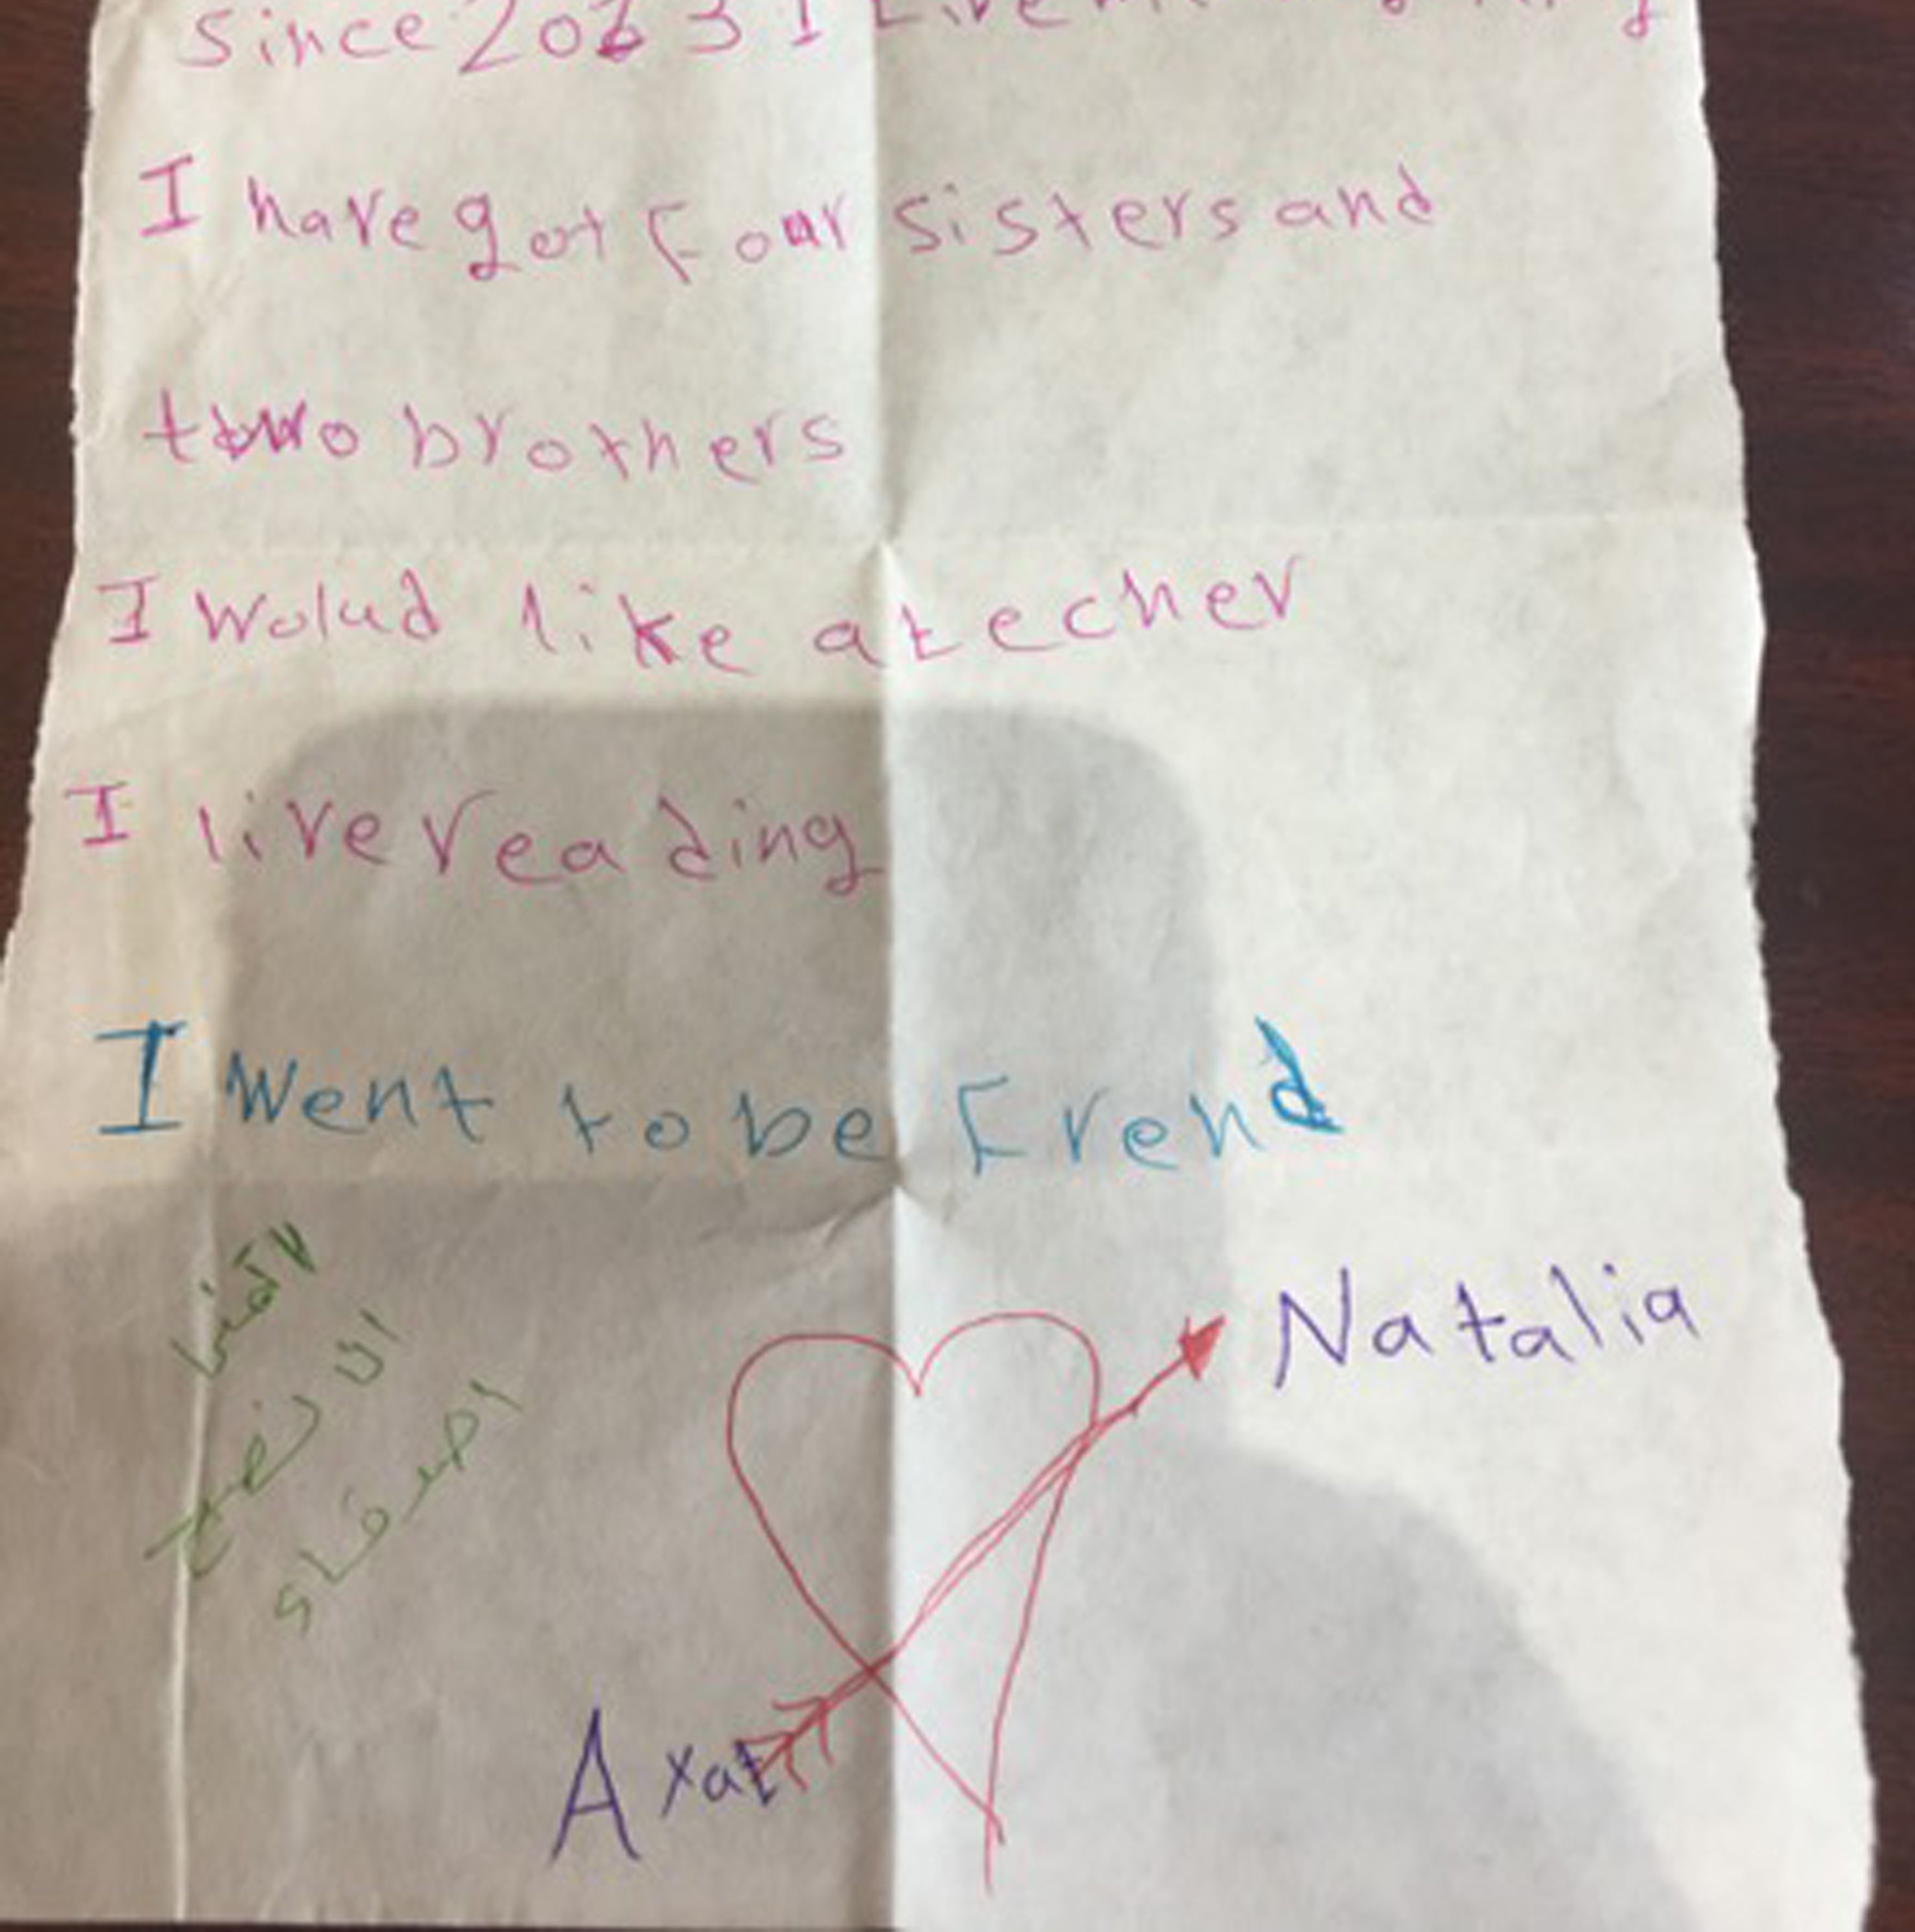 since 2023 I Live
I have got four sisters and
two brothers
I wolud like a techer
I live reading
I went to be frend
اتمنى
ان نصبح
اصدقاء
Natalia
Axat